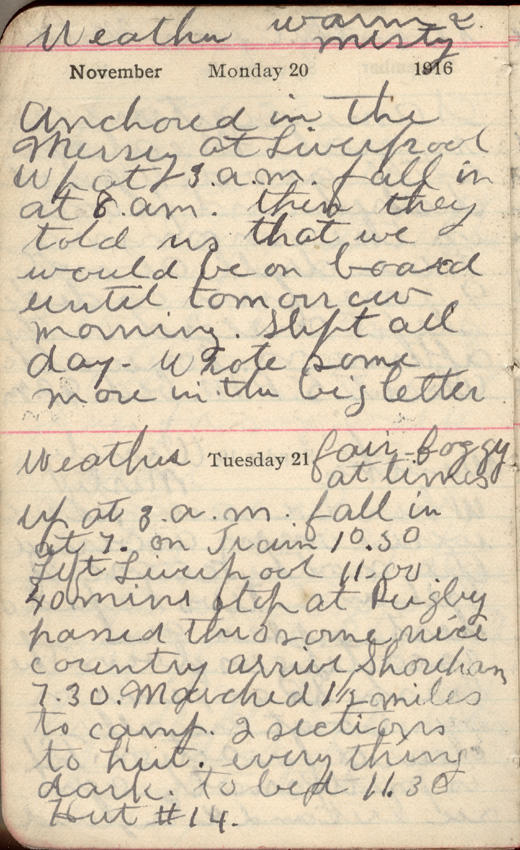 Weather warm &
misty
November Monday 20 1916
Anchored in the
Mersey at Liverpool
up at 3.a.m. fall in
at 8.am. then they
told us that we
would be on board
until tomorrow
morning. Slept all
day. Wrote some
more in the big letter
Weather Tuesday 21 fair-foggy
at times
up at 3.a.m. fall in
at 7. on Train 10.50
Left Liverpool 11.00.
40 mins stop at Rugby
passed thro some nice
country arrive Shoreham
7.30. Marched 1½ miles
to camp. 2 sections
to hut. every thing
dark. to bed 11.30
Hut #14.